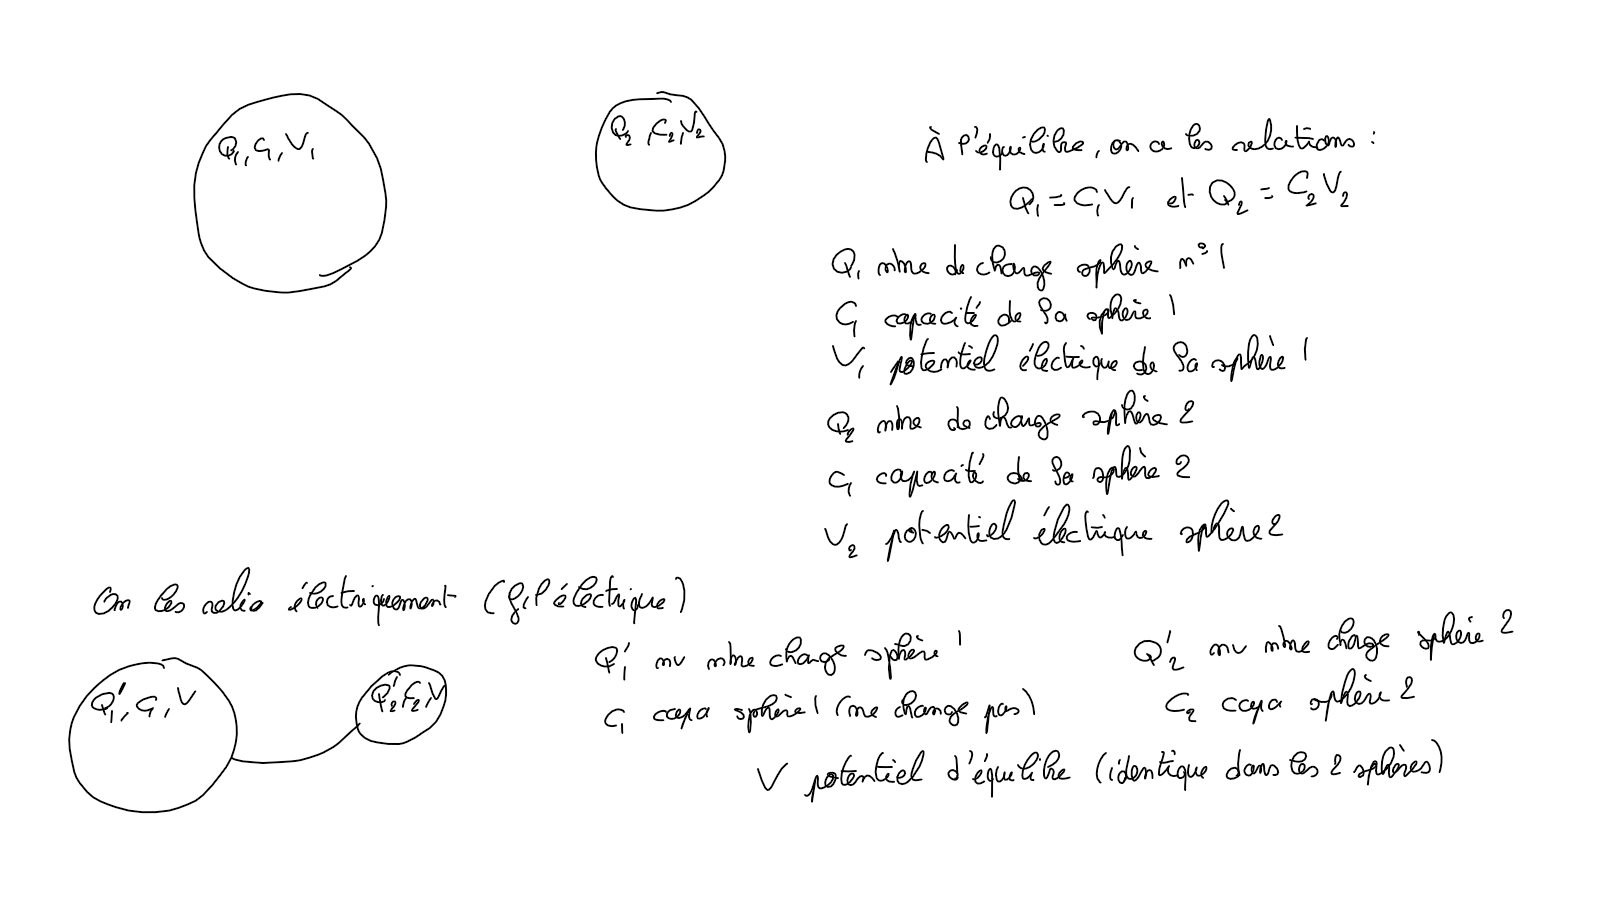 Q₁, C₁, V₁
Q₂, C₂, V₂
À l'équilibre, on a les relations :
Q₁ = C₁V₁ et Q₂ = C₂V₂
Q₁ nbre de charge sphère n°1
C₁ capacité de la sphère 1
V₁ potentiel électrique de la sphère 1
Q₂ nbre de charge sphère 2
C₁ capacité de la sphère 2
V₂ potentiel électrique sphère 2
On les relie électriquement (fil électrique)
Q'₁, C₁, V
Q'₂, C₂, V
Q'₁ nv nbre charge sphère 1
C₁ capa sphère 1 (ne change pas)
Q'₂ nv nbre charge sphère 2
C₂ capa sphère 2
V potentiel d'équilibre (identique dans les 2 sphères)